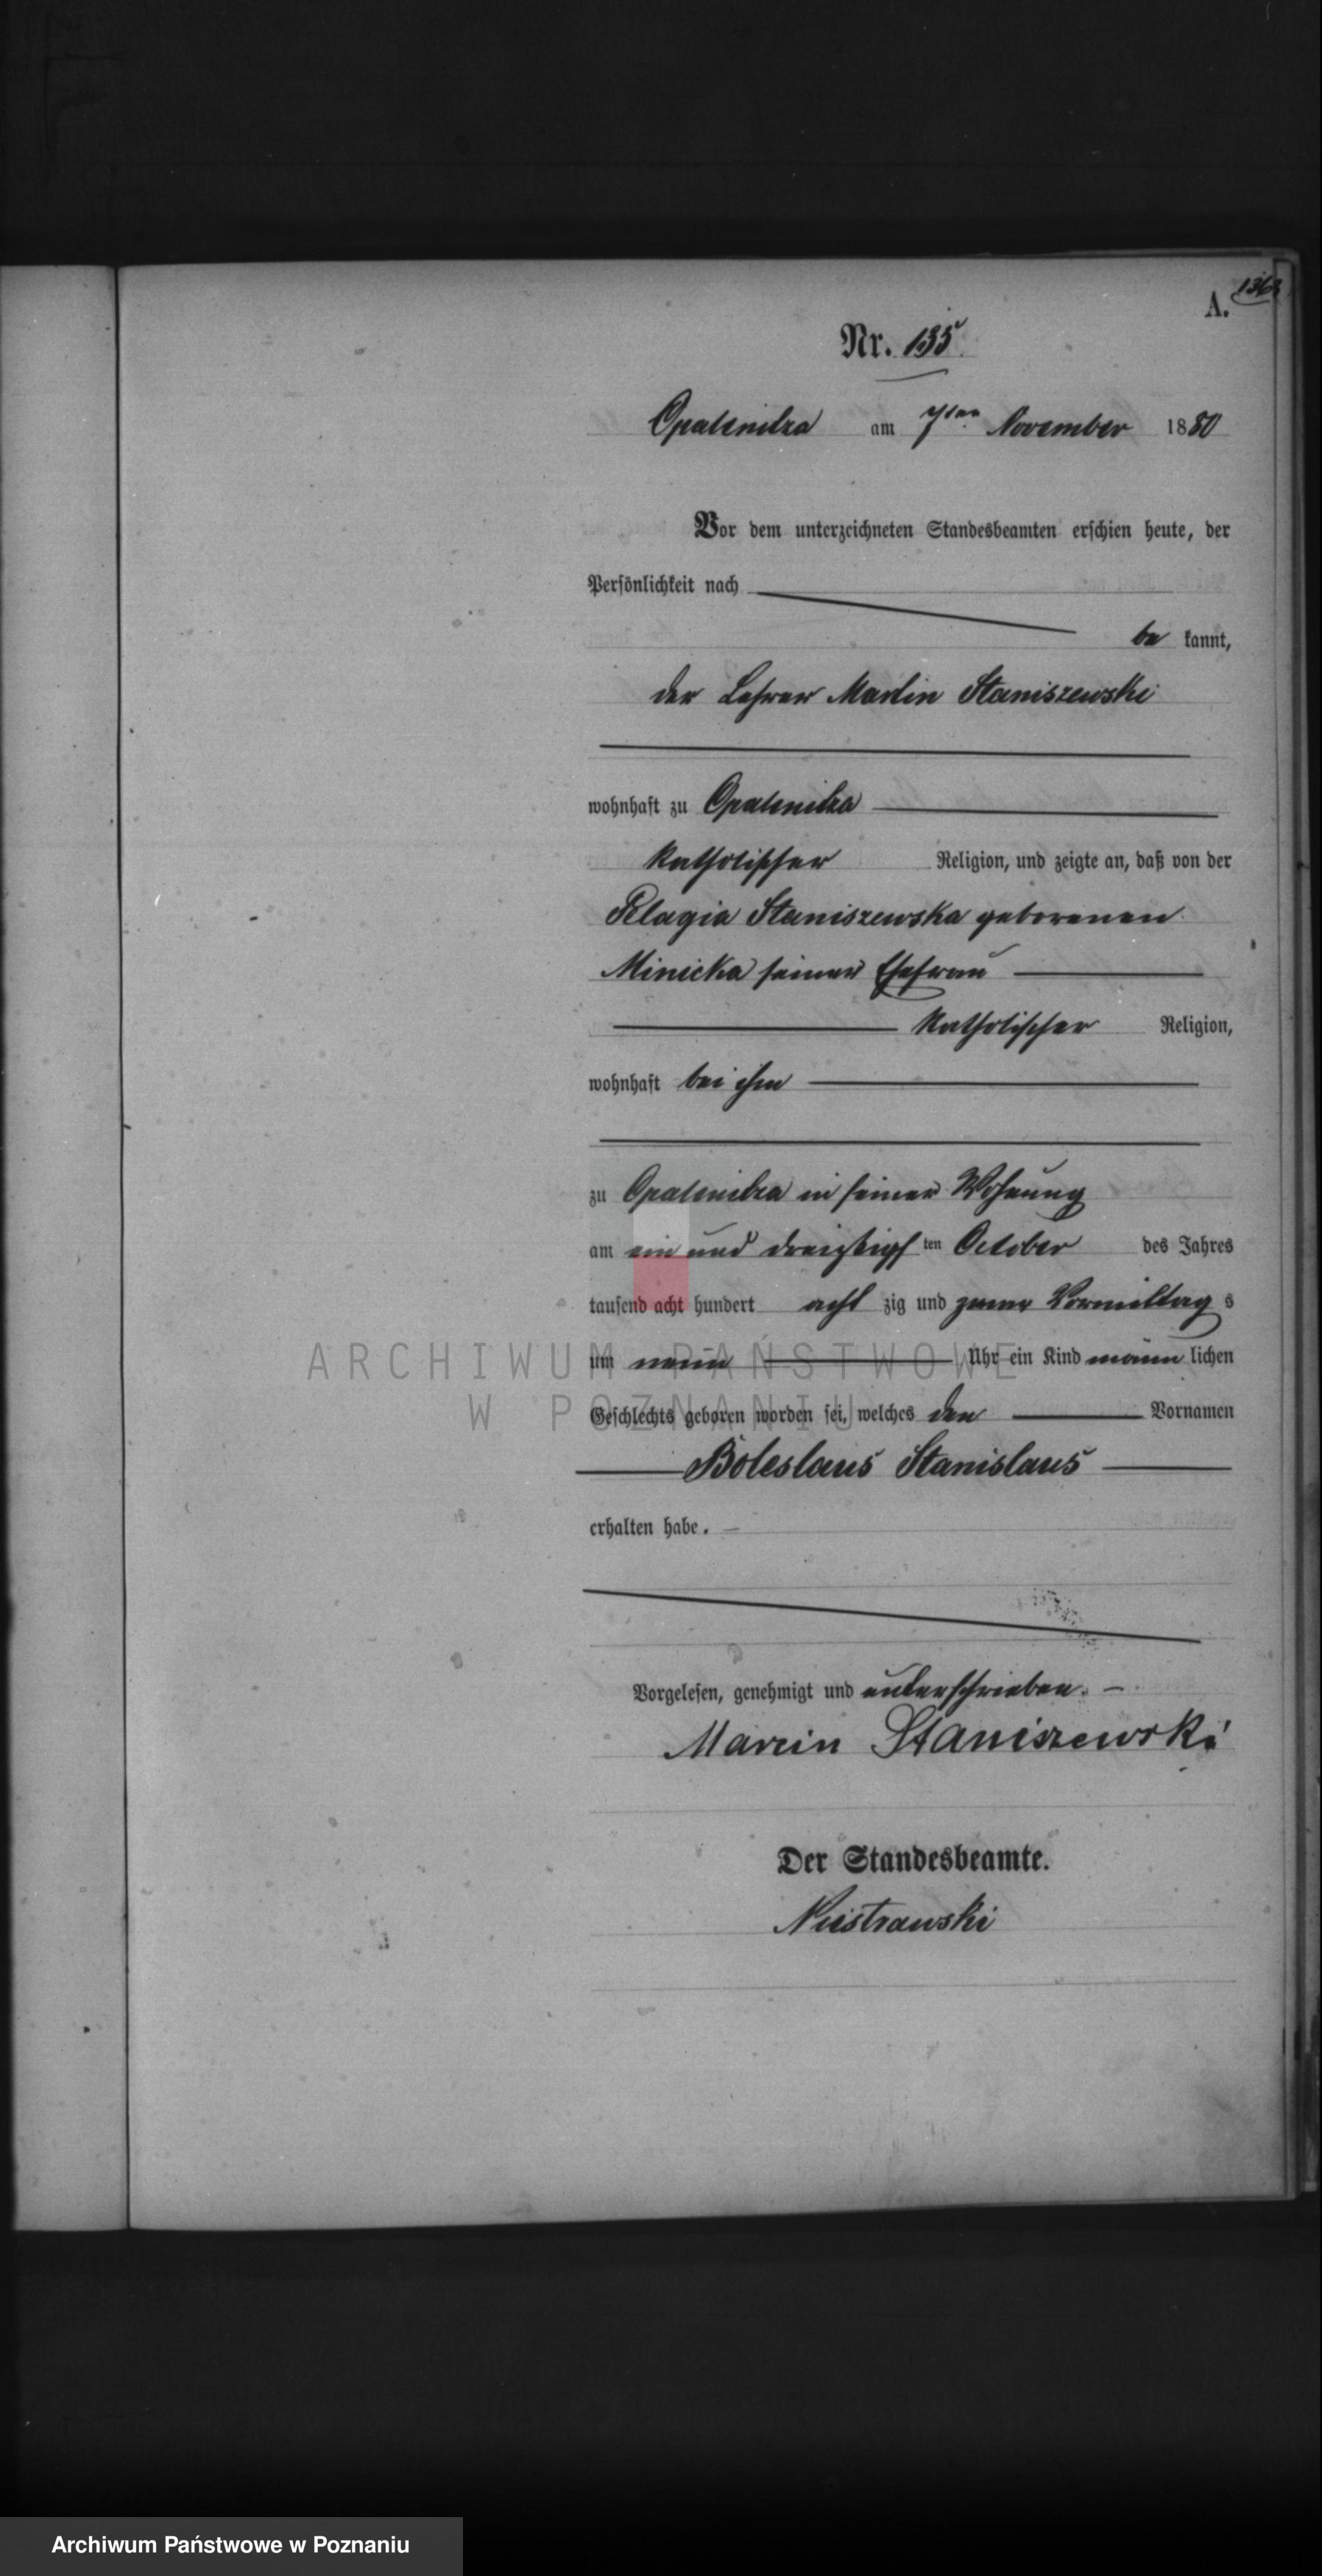 A.
Nr. 135.
Opalenitza am 7ten November 1880
Vor dem unterzeichneten Standesbeamten erschien heute, der
Persönlichkeit nach
be kannt,
der Lehrer Martin Staniszewski
wohnhaft zu Opalenitza
katholischer Religion, und zeigte an, daß von der
Pelagia Staniszewska geborenen
Minicka seiner Ehefrau
katholischer Religion,
wohnhaft bei ihm
zu Opalenitza in seiner Wohnung
am ein und dreizigst ten October des Jahres
tausend acht hundert acht zig und zwar Vormittag s
um neun Uhr ein Kind männ lichen
Geschlechts geboren worden sei, welches den Vornamen
Boleslaus Stanislaus
erhalten habe.
Vorgelesen, genehmigt und unterschrieben.
Marcin Staniszewski
Der Standesbeamte.
ARCHIWUM PAŃSTWOWE
W POZNANIU
Archiwum Państwowe w Poznaniu